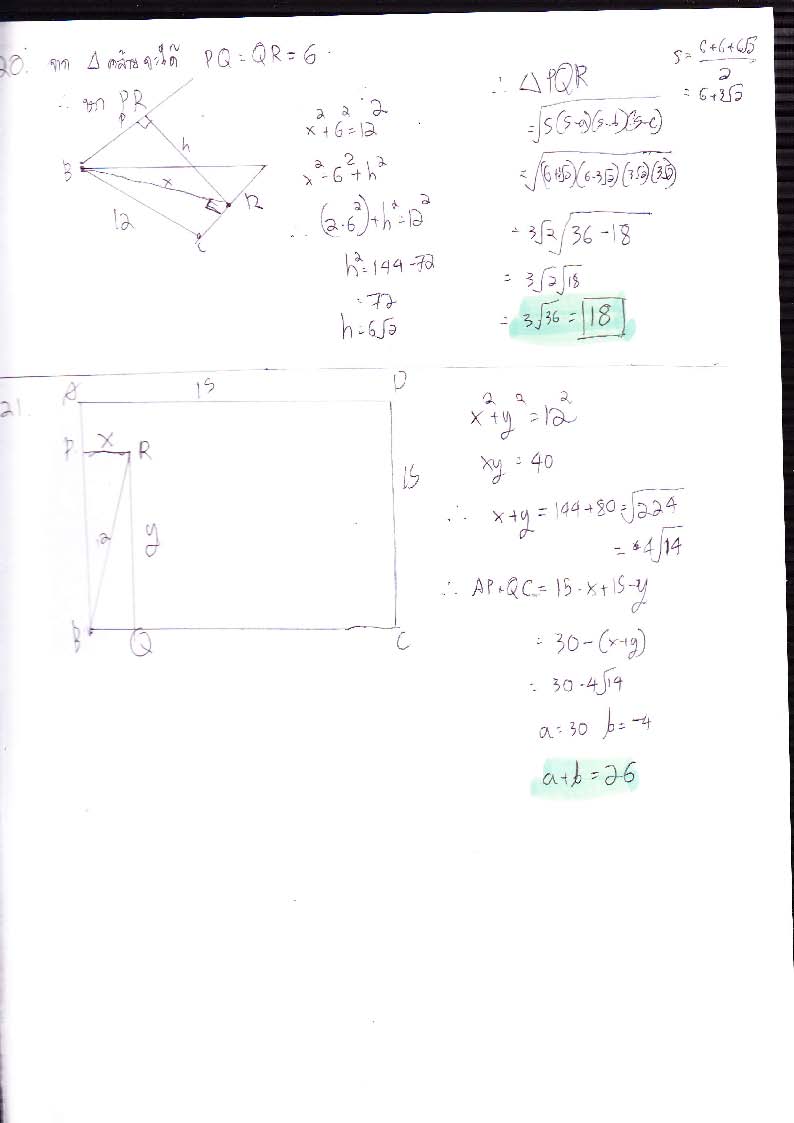 20. จาก Δ คล้ายจะได้ PQ = QR = 6
∴ หา PR
P
h
B
x
R
12
C
x² + 6² = 12²
x² = 6² + h²
∴ (2·6²) + h² = 12²
h² = 144 - 72
= 72
h = 6√2
∴ Δ PQR
= √S(S-a)(S-b)(S-c)
= √(6+3√2)(6-3√2)(3√2)(3√2)
= 3√2 √36 - 18
= 3√2 √18
= 3√36 = 18
= 6+3√2
21.
A 15 D
P x R
15
12 y
B Q C
x² + y² = 12²
xy = 40
∴ x+y = 144+80 = √224
= 4√14
∴ AP+QC = 15-x+15-y
= 30-(x+y)
= 30-4√14
a = 30 b = -4
a+b = 26